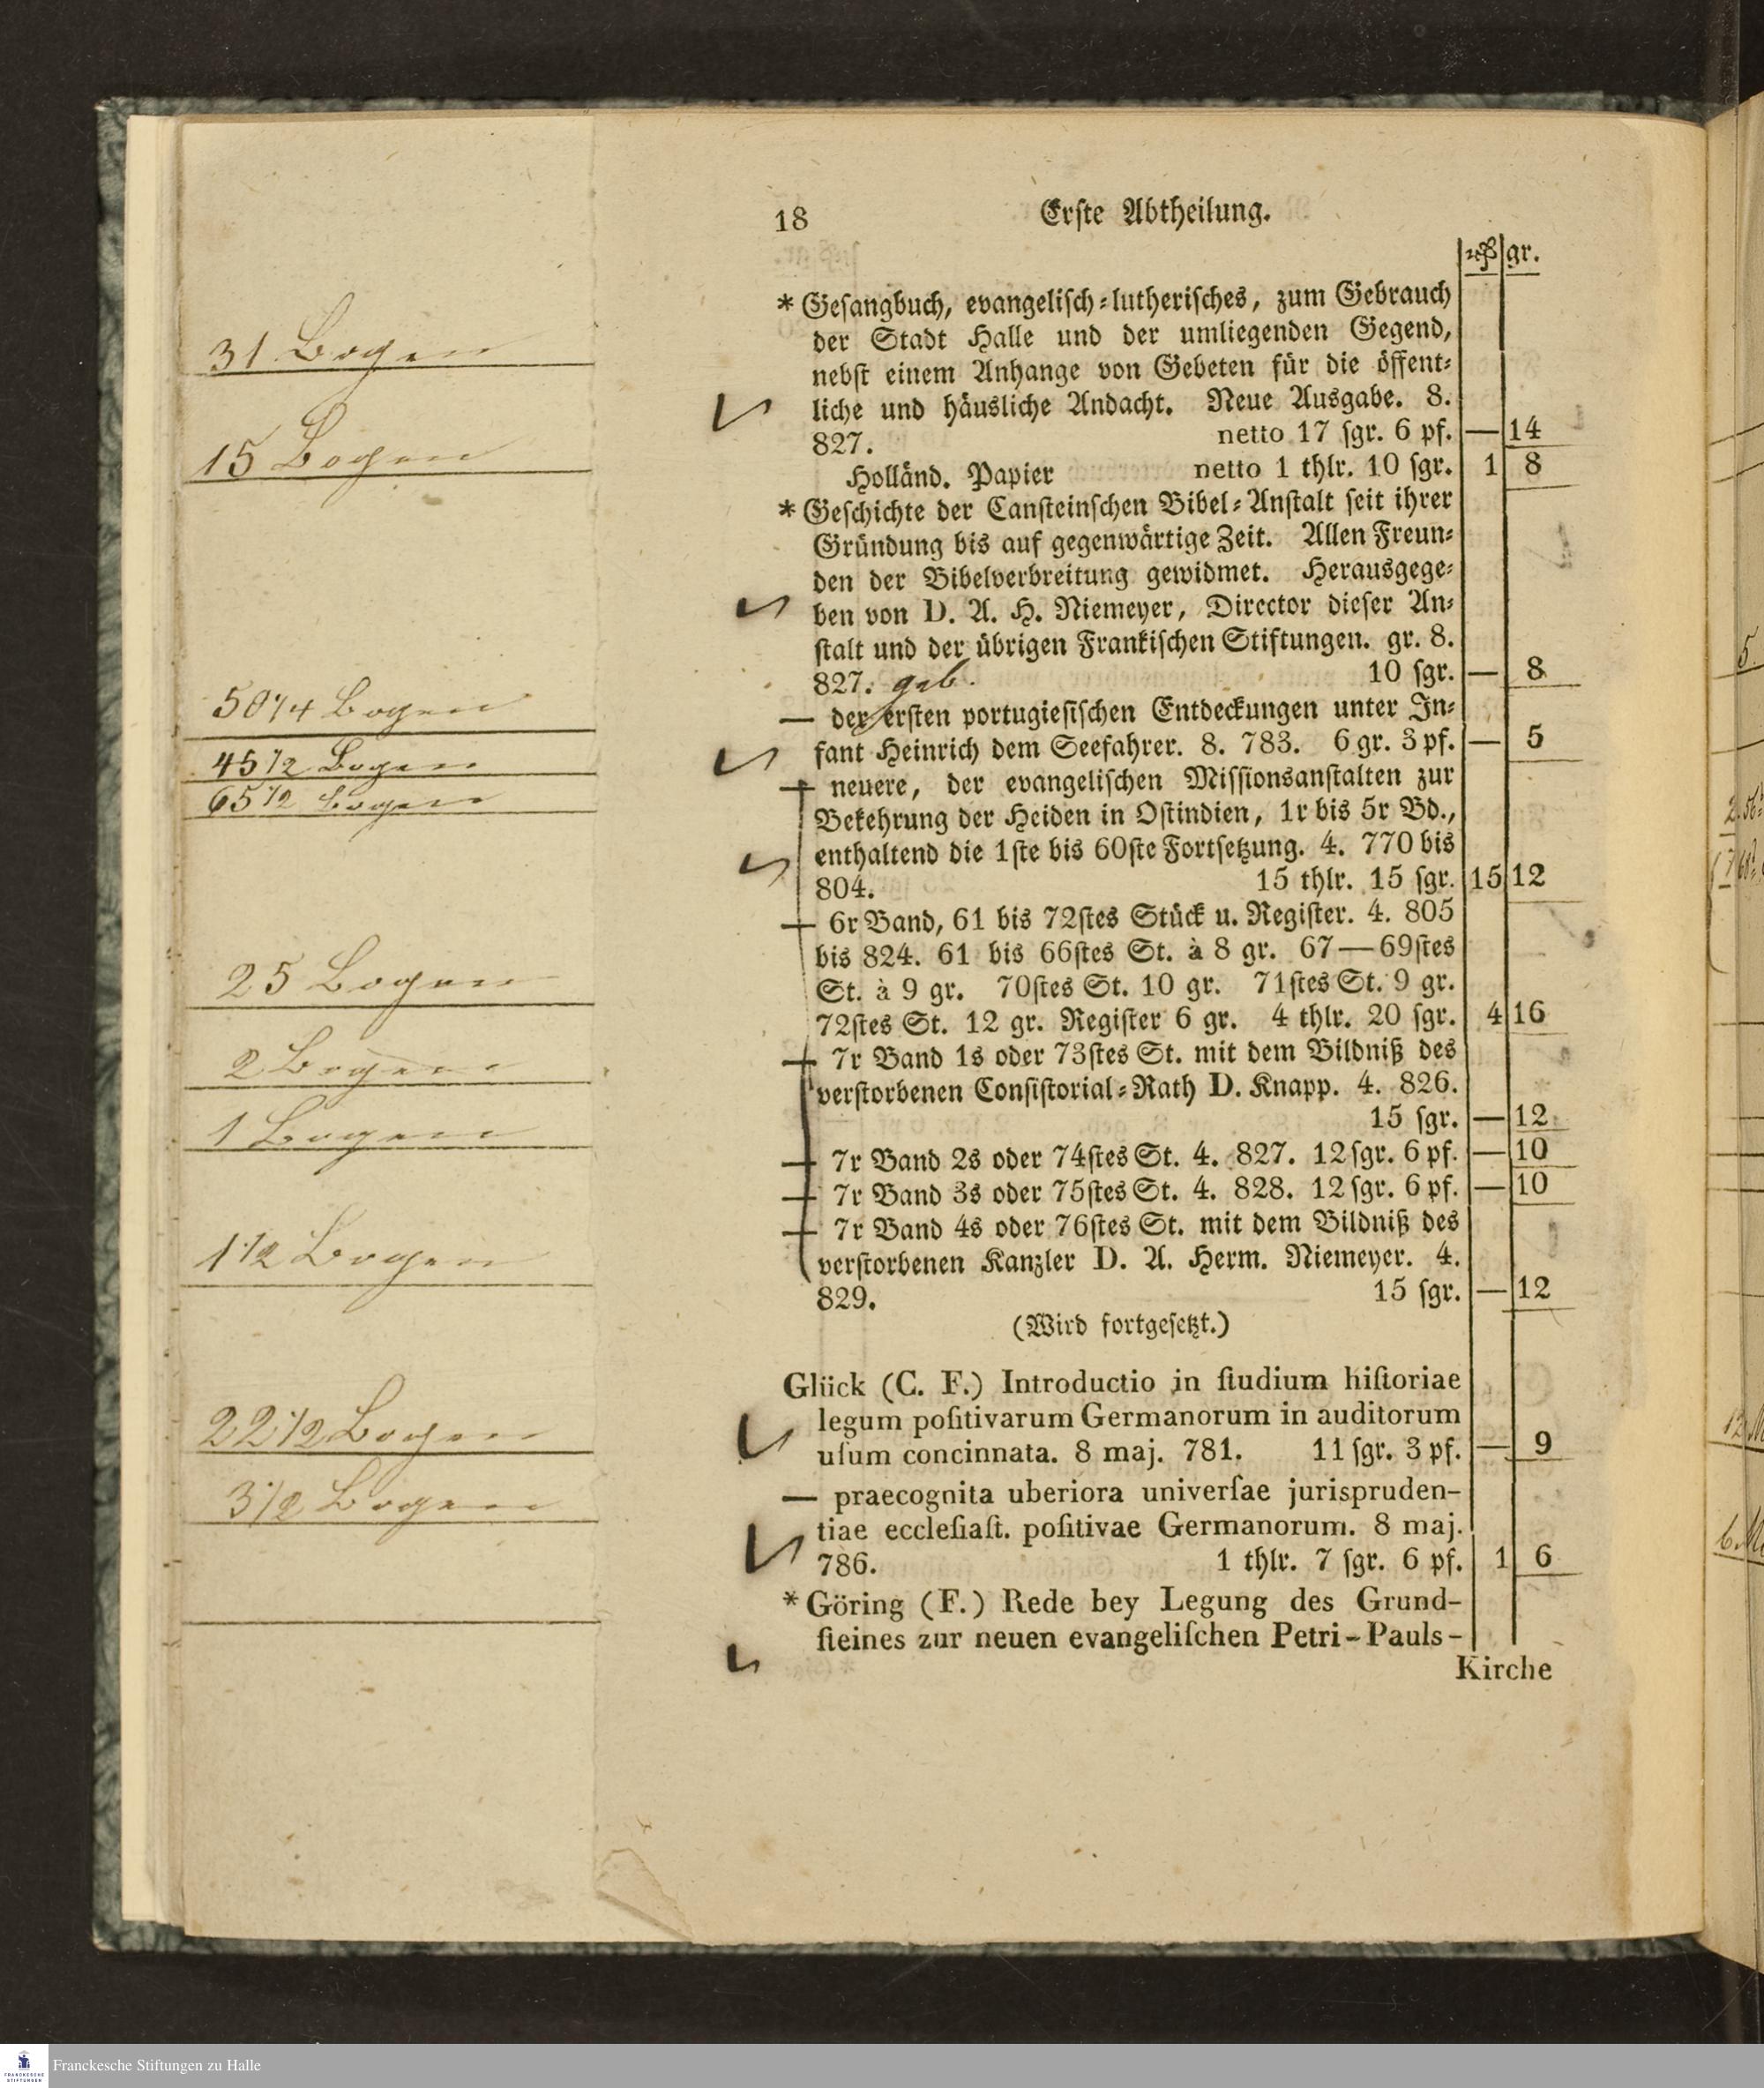 31 Bogen
15 Bogen
50¼ Bogen
45½ Bogen
65½ Bogen
25 Bogen
2 Bogen
1 Bogen
1½ Bogen
22½ Bogen
3½ Bogen
18 Erſte Abtheilung.
gr.
* Geſangbuch, evangeliſch-lutheriſches, zum Gebrauch
der Stadt Halle und der umliegenden Gegend,
nebſt einem Anhange von Gebeten für die öffent-
liche und häusliche Andacht. Neue Ausgabe. 8.
827. netto 17 ſgr. 6 pf. — 14
Holländ. Papier netto 1 thlr. 10 ſgr. 1 8
* Geſchichte der Canſteinſchen Bibel-Anſtalt ſeit ihrer
Gründung bis auf gegenwärtige Zeit. Allen Freun-
den der Bibelverbreitung gewidmet. Herausgege-
ben von D. A. H. Niemeyer, Director dieſer An-
ſtalt und der übrigen Frankiſchen Stiftungen. gr. 8.
827. geb. 10 ſgr. — 8
— der erſten portugieſiſchen Entdeckungen unter In-
fant Heinrich dem Seefahrer. 8. 783. 6 gr. 3 pf. — 5
— neuere, der evangeliſchen Miſſionsanſtalten zur
Bekehrung der Heiden in Oſtindien, 1r bis 5r Bd.,
enthaltend die 1ſte bis 60ſte Fortſetzung. 4. 770 bis
804. 15 thlr. 15 ſgr. 15 12
— 6r Band, 61 bis 72ſtes Stück u. Regiſter. 4. 805
bis 824. 61 bis 66ſtes St. à 8 gr. 67—69ſtes
St. à 9 gr. 70ſtes St. 10 gr. 71ſtes St. 9 gr.
72ſtes St. 12 gr. Regiſter 6 gr. 4 thlr. 20 ſgr. 4 16
— 7r Band 1s oder 73ſtes St. mit dem Bildniß des
verſtorbenen Conſiſtorial-Rath D. Knapp. 4. 826.
15 ſgr. — 12
— 7r Band 2s oder 74ſtes St. 4. 827. 12 ſgr. 6 pf. — 10
— 7r Band 3s oder 75ſtes St. 4. 828. 12 ſgr. 6 pf. — 10
— 7r Band 4s oder 76ſtes St. mit dem Bildniß des
verſtorbenen Kanzler D. A. Herm. Niemeyer. 4.
829. 15 ſgr. — 12
(Wird fortgeſetzt.)
Glück (C. F.) Introductio in ſtudium hiſtoriae
legum poſitivarum Germanorum in auditorum
uſum concinnata. 8 maj. 781. 11 ſgr. 3 pf. — 9
— praecognita uberiora univerſae jurispruden-
tiae eccleſiaſt. poſitivae Germanorum. 8 maj.
786. 1 thlr. 7 ſgr. 6 pf. 1 6
* Göring (F.) Rede bey Legung des Grund-
ſteines zur neuen evangeliſchen Petri-Pauls-
Kirche
Franckesche Stiftungen zu Halle
FRANCKESCHE
STIFTUNGEN